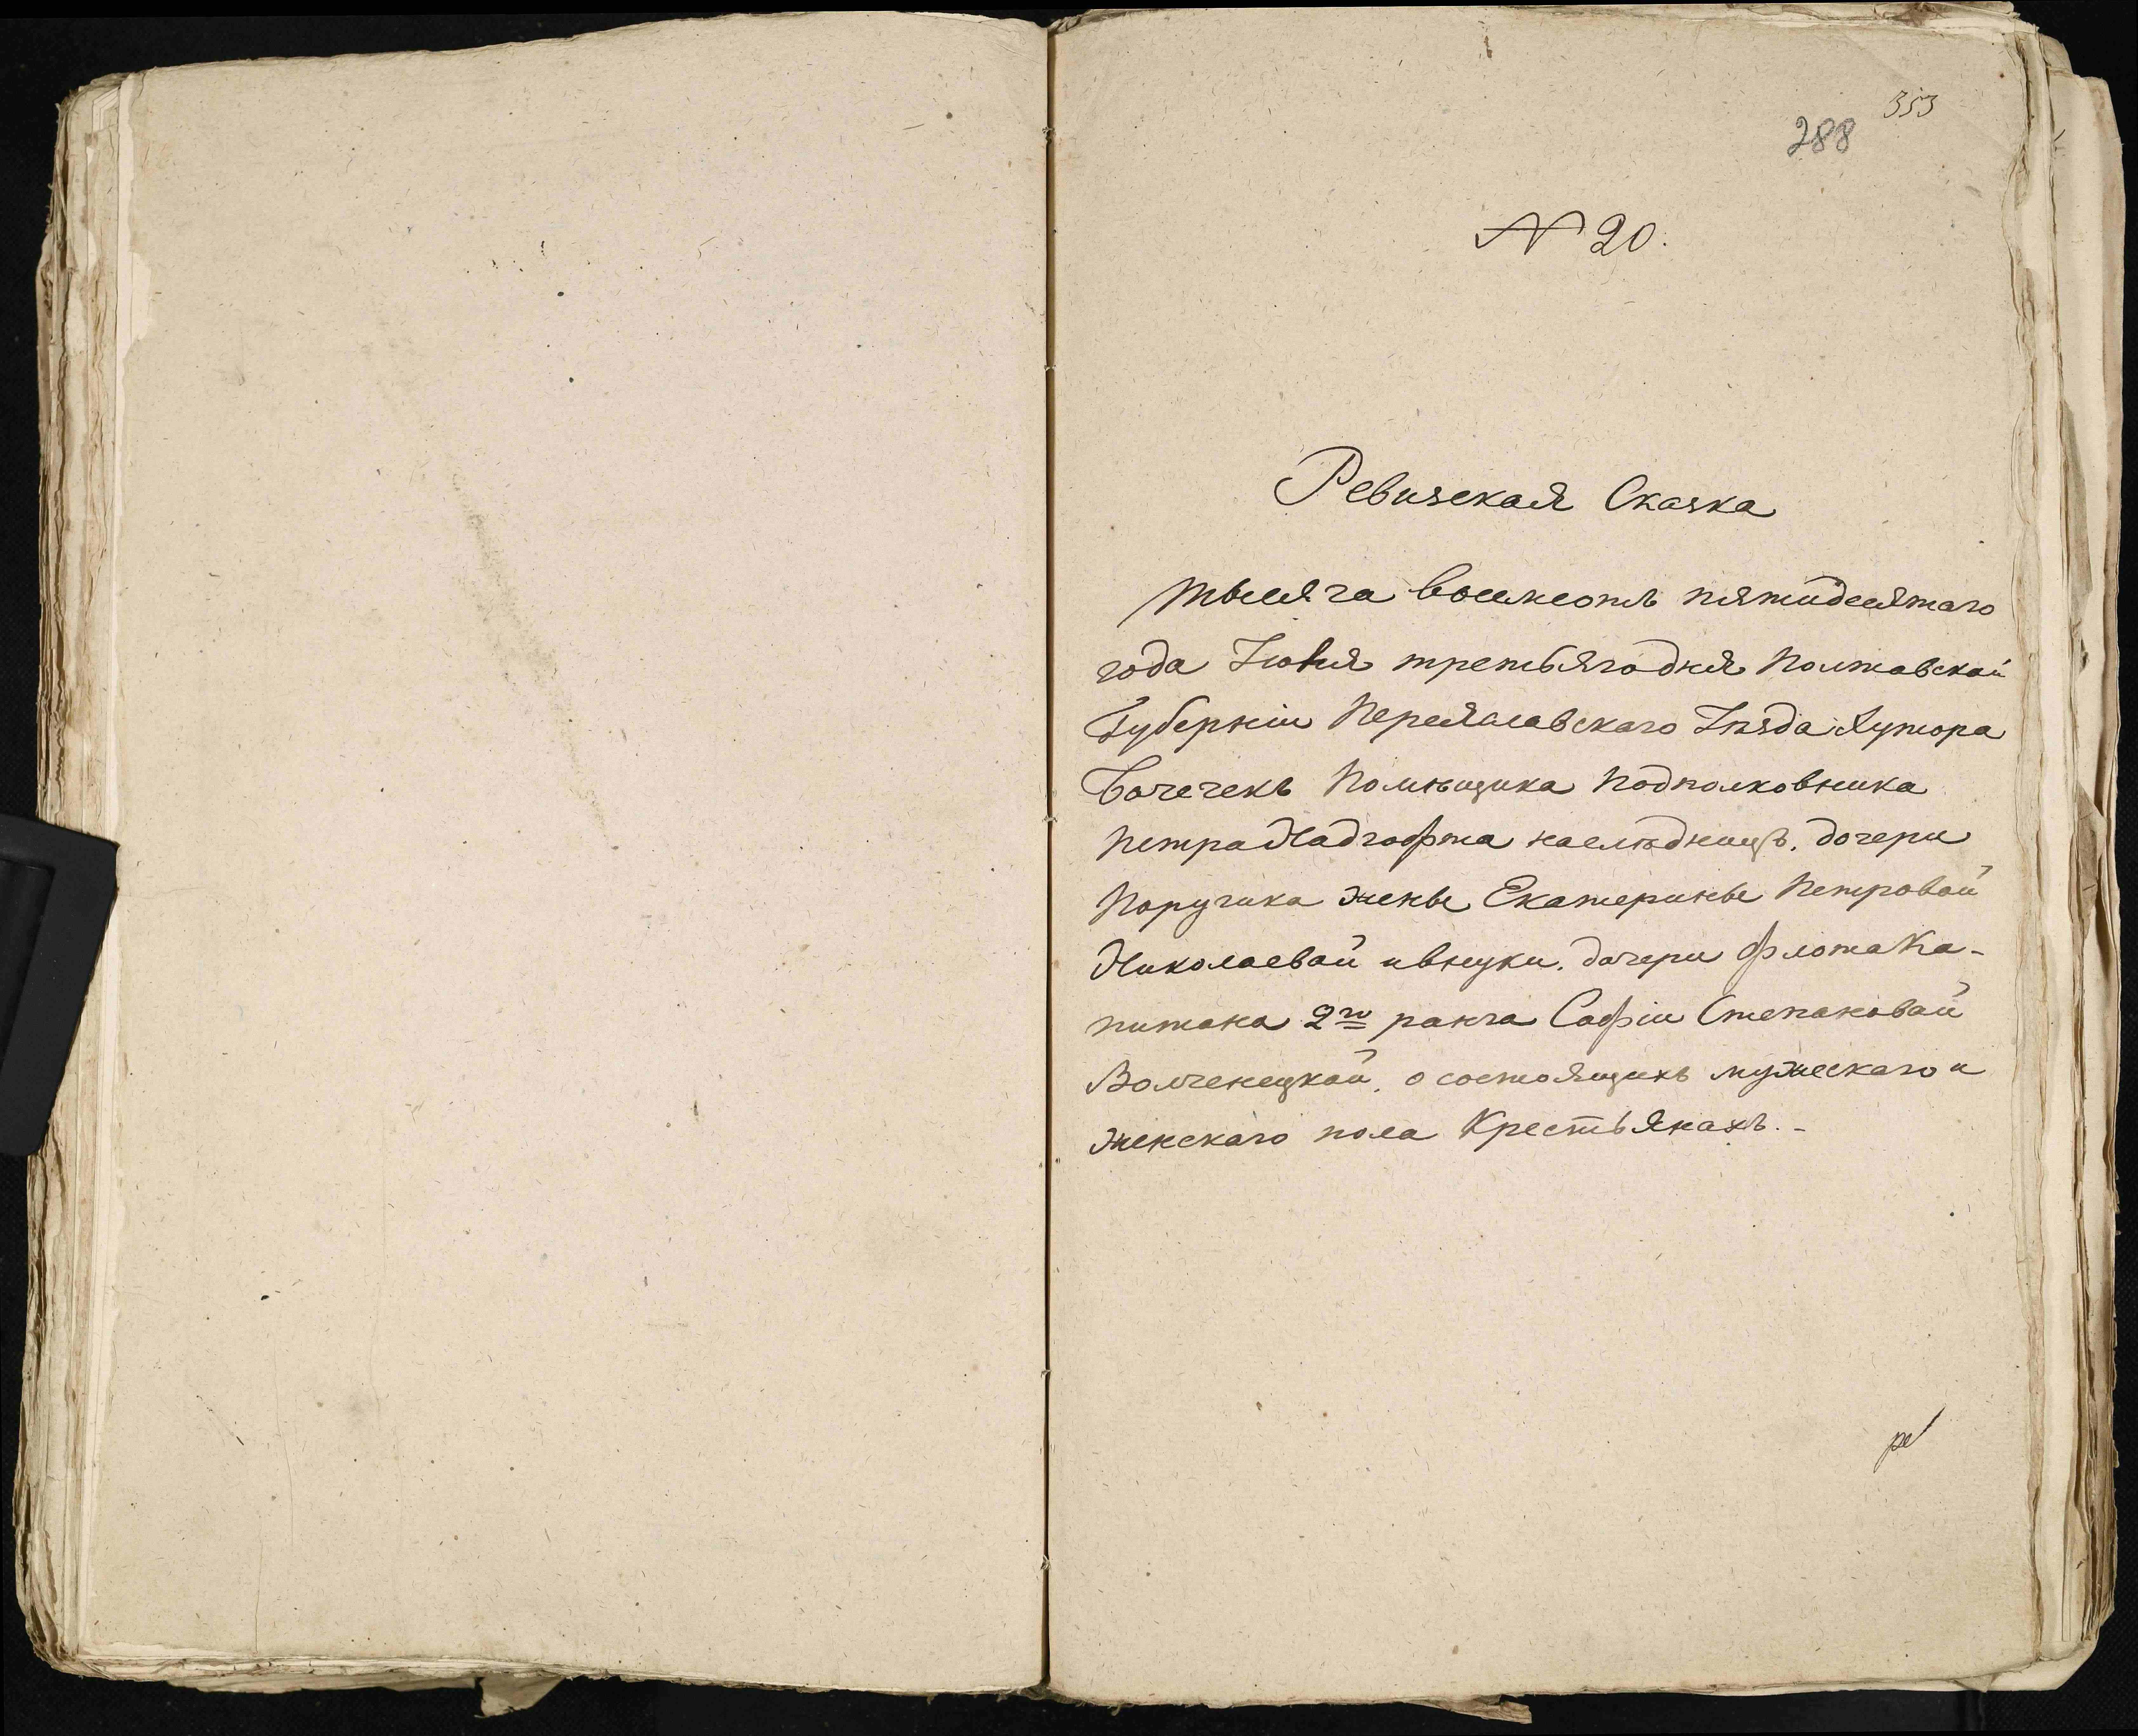 353
288
№ 20.
Ревизская Сказка
Тысяча восемсотъ пятидесятаго
года Іюня третьягодня Полтавской
Губерніи Переяславскаго Уѣзда Хутора
Бочечекъ Помѣщика Подполковника
Петра Надгофта наслѣдницъ. дочери
Поручика жены Екатерины Петровой
Николаевой ивнуки. дочери Флота Ка-
питана 2го ранга Софіи Степановой
Волченецкой. о состоящихъ мужескаго и
женскаго пола Крестьянахъ.-